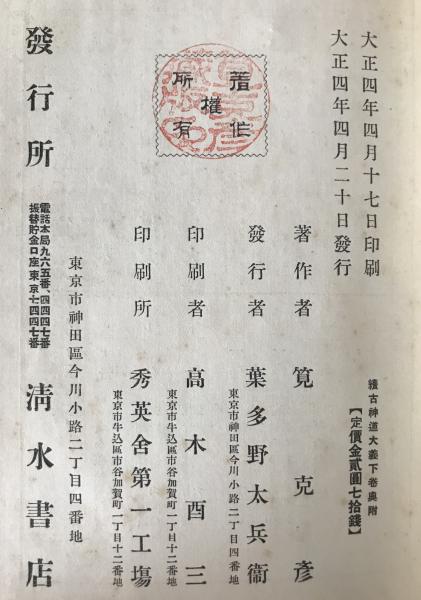 大正四年四月十七日印刷
大正四年四月二十日發行
著作
權
所有
續古神道大義下卷奧附
【定價金貳圓七拾錢】
著作者 筧克彥
發行者 葉多野太兵衞
東京市神田區今川小路二丁目四番地
印刷者 高木酉三
東京市牛込區市谷加賀町一丁目十二番地
印刷所 秀英舍第一工場
東京市牛込區市谷加賀町一丁目十二番地
東京市神田區今川小路二丁目四番地
發行所 淸水書店
電話本局九六五番、四四四七番
振替貯金口座東京七四四七番